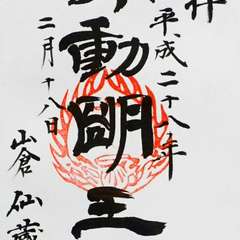 拝
平成二十八年
不動明王
二月十八日
山倉 仙蔵